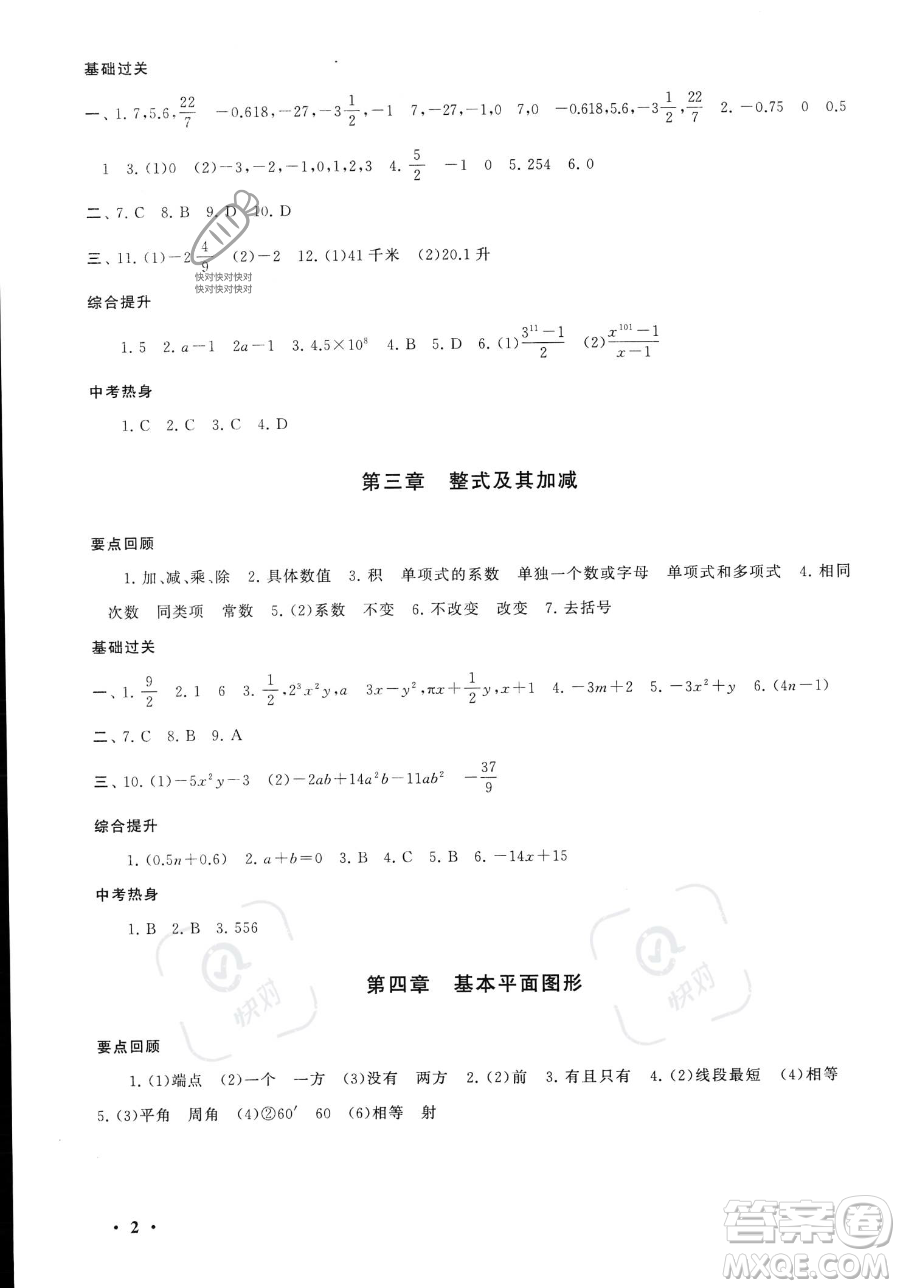 基础过关
一、1.7,5.6,22/7  -0.618,-27,-3 1/2,-1  7,-27,-1,0  7,0  -0.618,5.6,-3 1/2,22/7  2. -0.75  0  0.5
1  3.(1)0  (2)-3,-2,-1,0,1,2,3  4. 5/2  -1  0  5.254  6.0
二、7. C  8. B  9. D  10. D
三、11.(1)-2 4/9  (2)-2  12.(1)41千米  (2)20.1升
快对快对快对
快对快对快对
综合提升
1.5  2.a-1  2a-1  3.4.5×10⁸  4. B  5. D  6.(1)(3¹¹-1)/2  (2)(x¹⁰¹-1)/(x-1)
中考热身
1. C  2. C  3. C  4. D
第三章  整式及其加减
要点回顾
1.加、减、乘、除  2.具体数值  3.积  单项式的系数  单独一个数或字母  单项式和多项式  4.相同
次数  同类项  常数  5.(2)系数  不变  6.不改变  改变  7.去括号
基础过关
一、1. 9/2  2.1  6  3. 1/2,2³x²y,a  3x-y²,πx+1/2y,x+1  4. -3m+2  5. -3x²+y  6.(4n-1)
二、7. C  8. B  9. A
三、10.(1)-5x²y-3  (2)-2ab+14a²b-11ab²  -37/9
综合提升
1.(0.5n+0.6)  2.a+b=0  3. B  4. C  5. B  6. -14x+15
中考热身
1. B  2. B  3.556
快对
快对
第四章  基本平面图形
要点回顾
1.(1)端点  (2)一个  一方  (3)没有  两方  2.(2)前  3.有且只有  4.(2)线段最短  (4)相等
5.(3)平角  周角  (4)②60′  60  (6)相等  射
· 2 ·
答案圈
MXQE.COM